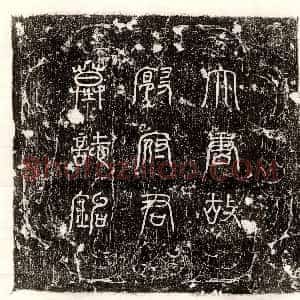 大唐故
殷府君
墓誌銘